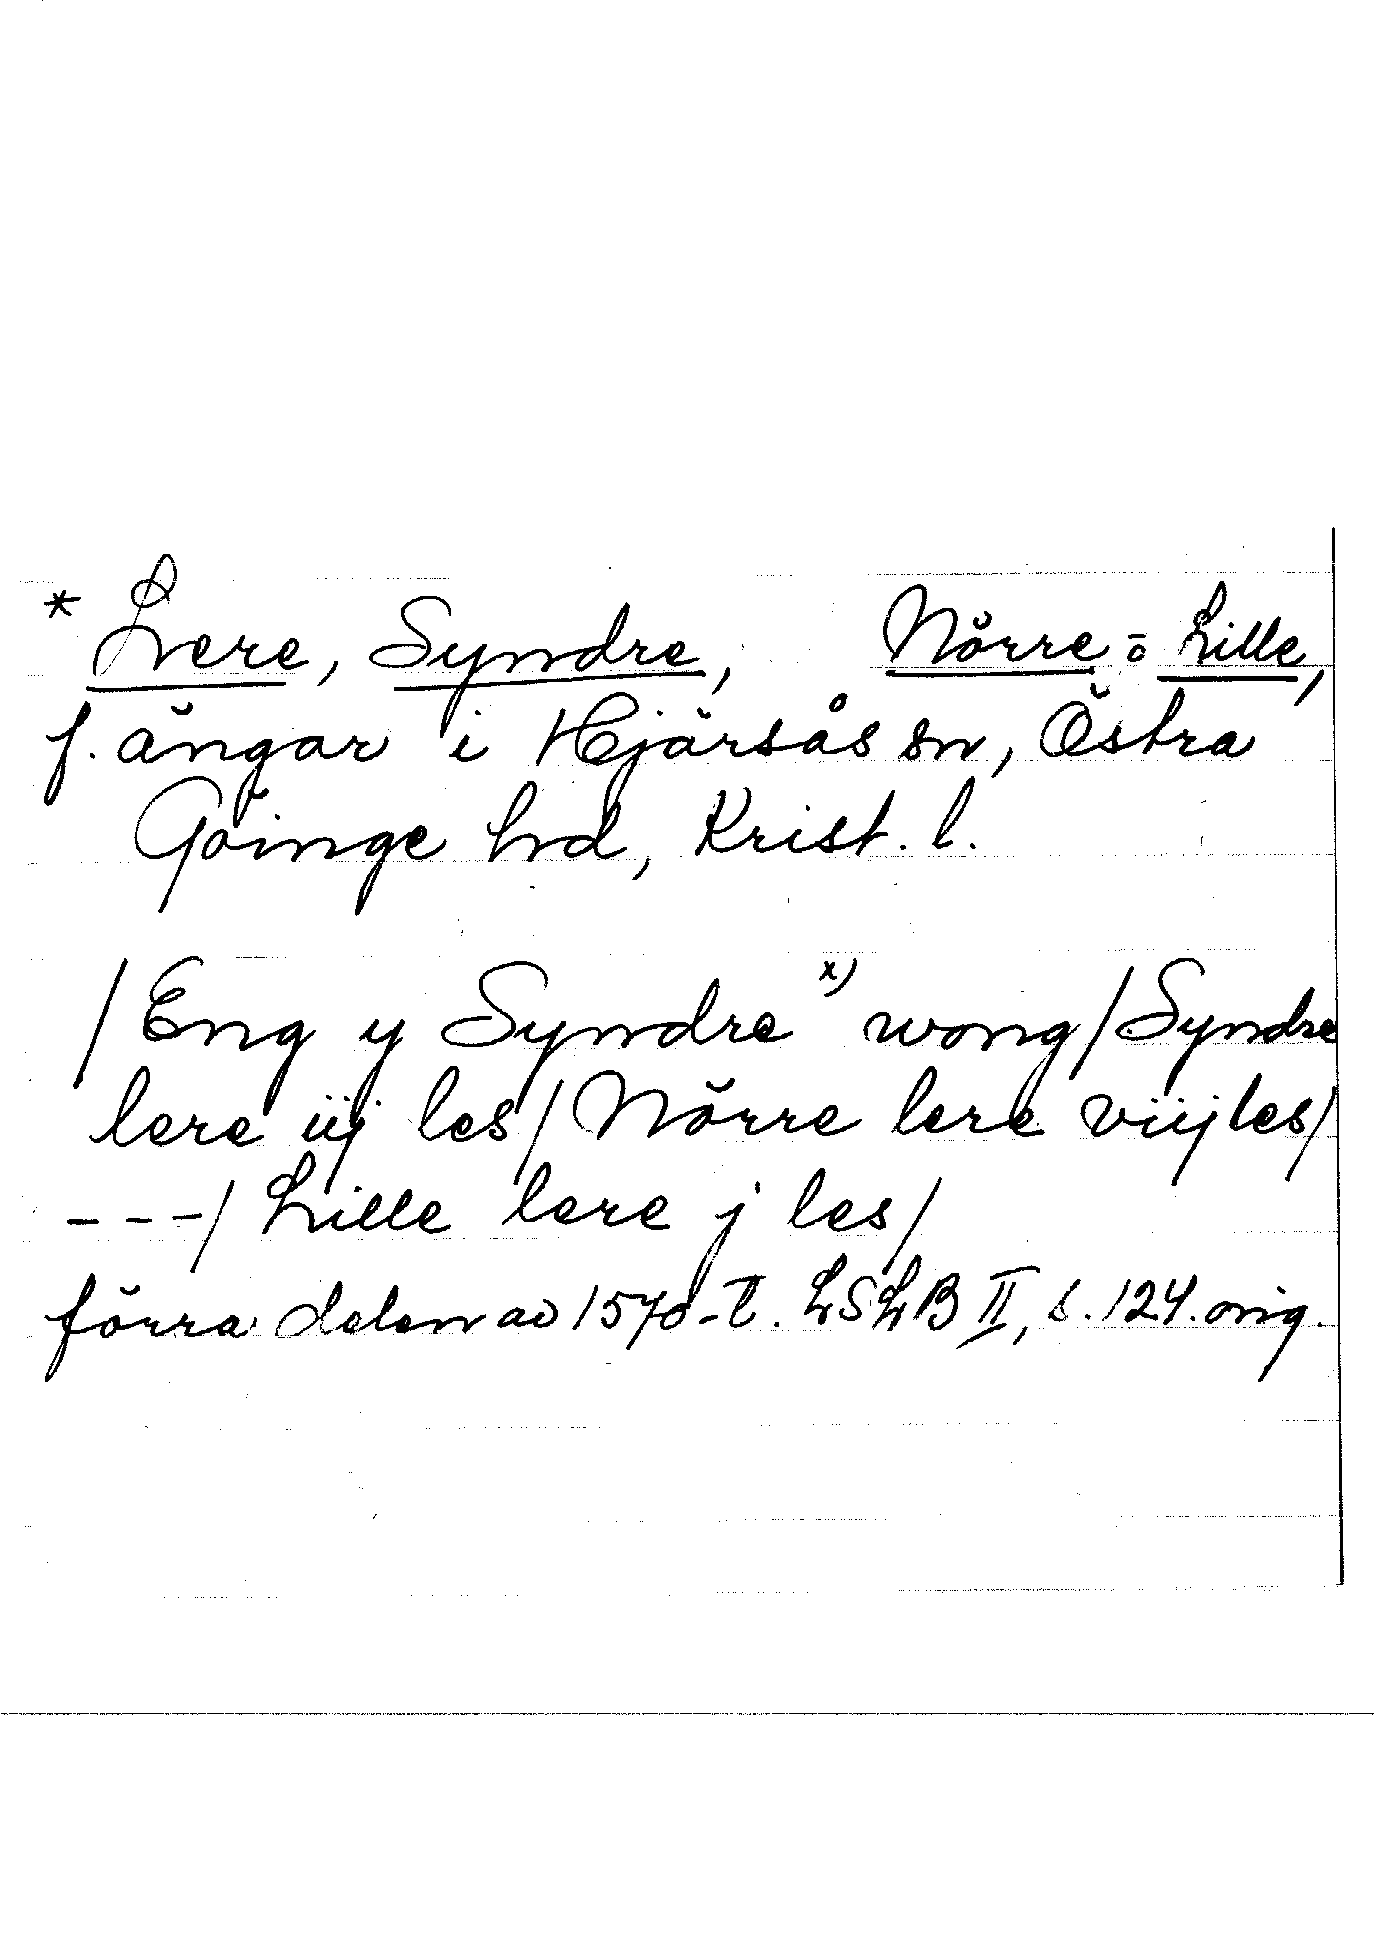 * Lere, Syndre, Nörre o Lille,
f. ängar i Hjärsås sn, Östra
Göinge hd, Krist. l.
/Eng y Syndre x) wong/Syndre
lere iij les/Nörre lere viij les/
---/Lille lere j les/
förra delen av 1570-t. LSLB II, s. 124. orig.